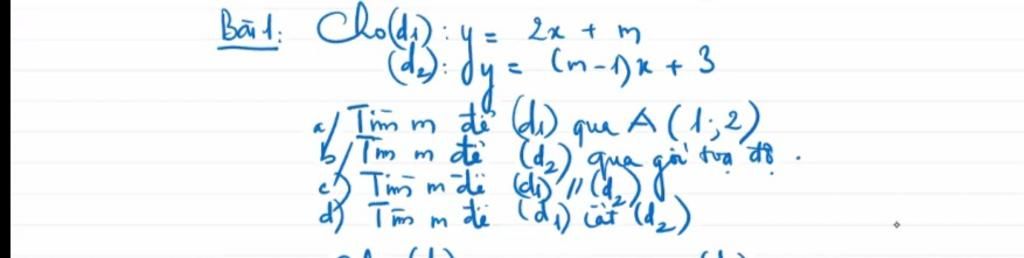 Bài 1: Cho (d1): y = 2x + m
(d2): y = (m-1)x + 3
a/ Tìm m để (d1) qua A(1;2)
b/ Tìm m để (d2) qua gốc toạ độ.
c) Tìm m để (d1) // (d2)
d) Tìm m để (d1) cắt (d2)